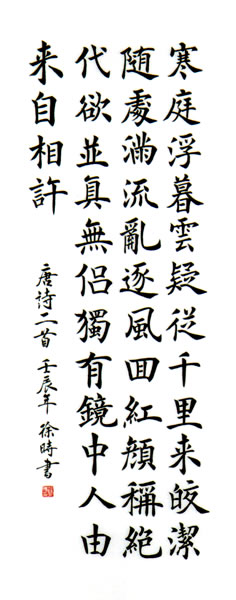 寒庭浮暮雲疑從千里来皎潔
随處滿流亂逐風回紅顔稱絶
代欲並真無侶獨有鏡中人由
来自相許
唐詩二首 壬辰年 徐時書